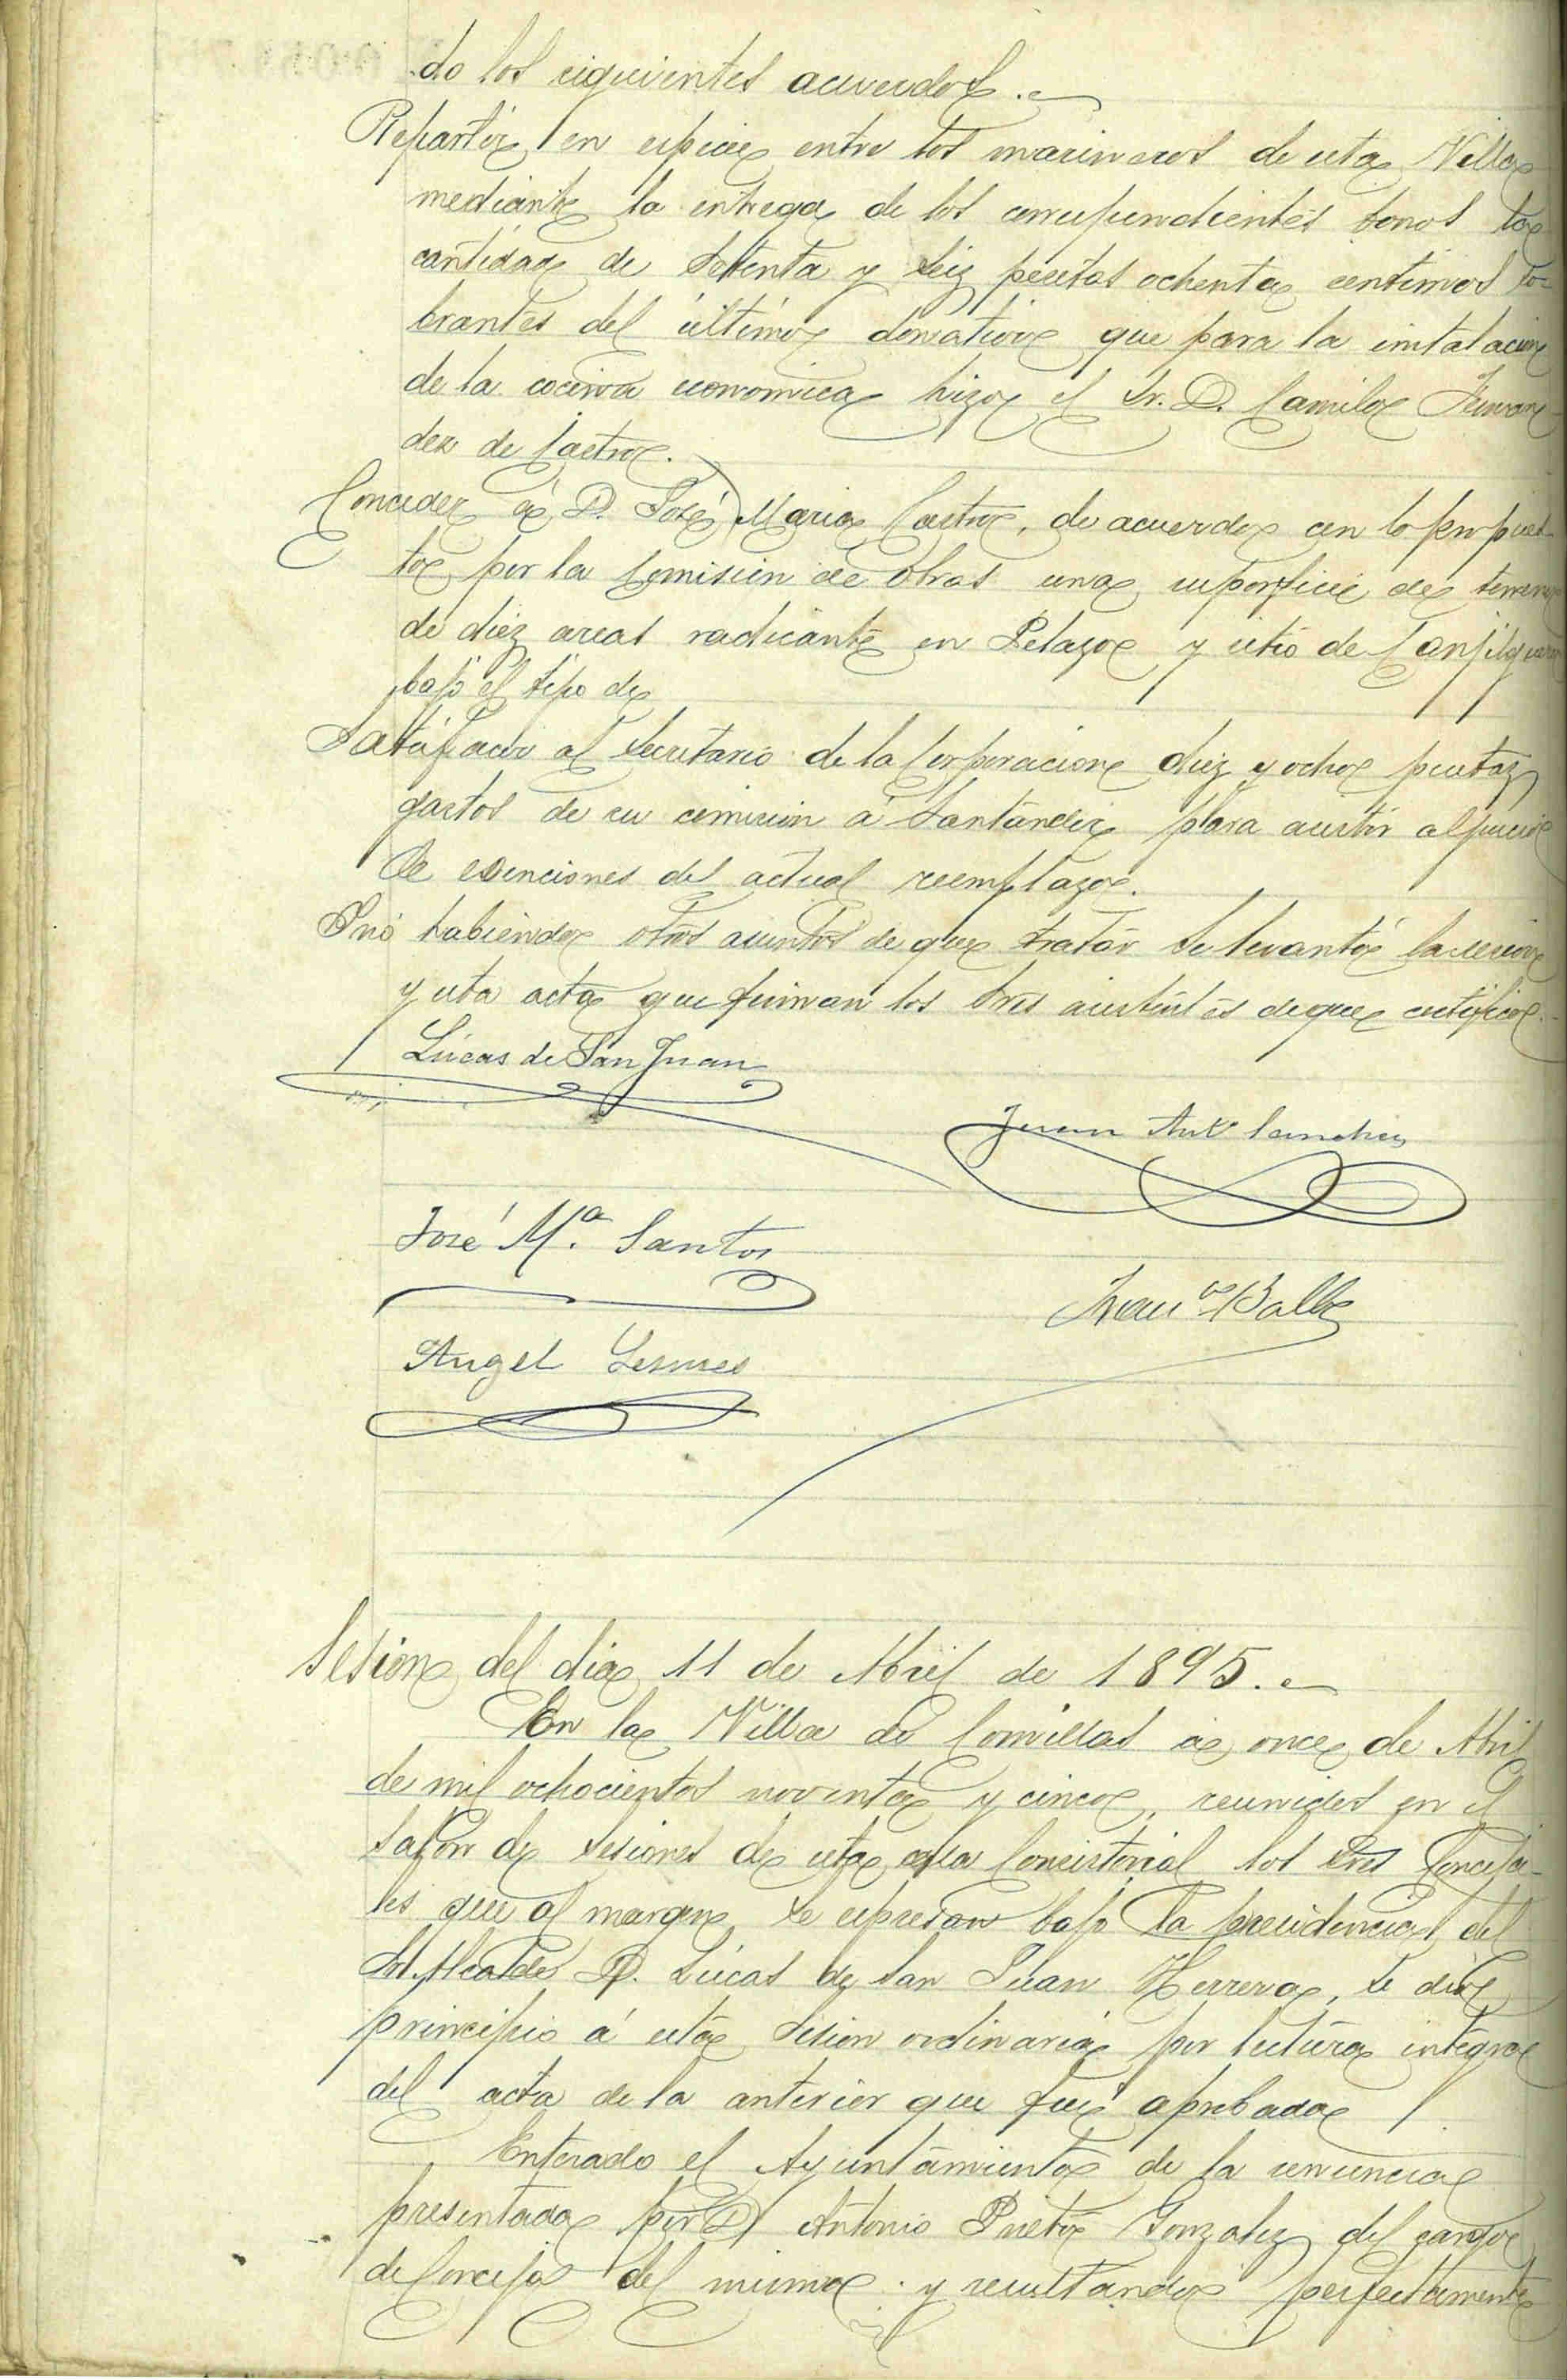 do los siguientes acuerdos.
Repartir en especie entre los marineros de esta Villa
mediante la entrega de los correspondientes bonos la
cantidad de setenta y seis pesetas ochenta centimos so-
brantes del último donativo que para la instalacion
de la cocina economica hizo el Sr. D. Camilo Fernan-
dez de Castro.
Conceder á D. José Maria Castro, de acuerdo con lo propues-
to por la Comision de obras una superficie de terreno
de diez areas radicante en Pelazo y sitio de
bajo el tipo de
Satisfacer al Secretario de la Corporacion diez y ocho pesetas
gastos de su comision á Santander para asistir al juicio
de exenciones del actual reemplazo.
Y no habiendo otros asuntos de que tratar se levantó la sesion
y esta acta que firman los Sres asistentes de que certifico.
Lúcas de San Juan
Juan Antº Sanchez
José Mª. Santos
Franco Balbe
Angel Lesmes
Sesion del dia 11 de Abril de 1895.
En la Villa de Comillas á once de Abril
de mil ochocientos noventa y cinco, reunidos en el
salon de sesiones de esta casa Consistorial los Sres Conceja-
les que al margen se espresan bajo la presidencia del
Sr. Alcalde D. Lúcas de San Juan Herrera, se dió
principio á esta sesion ordinaria por lectura integra
del acta de la anterior que fué aprobada
Enterado el Ayuntamiento de la renuncia
presentada por D Antonio Prieto Gonzalez del cargo
de Concejal del mismo y resultando perfectamente